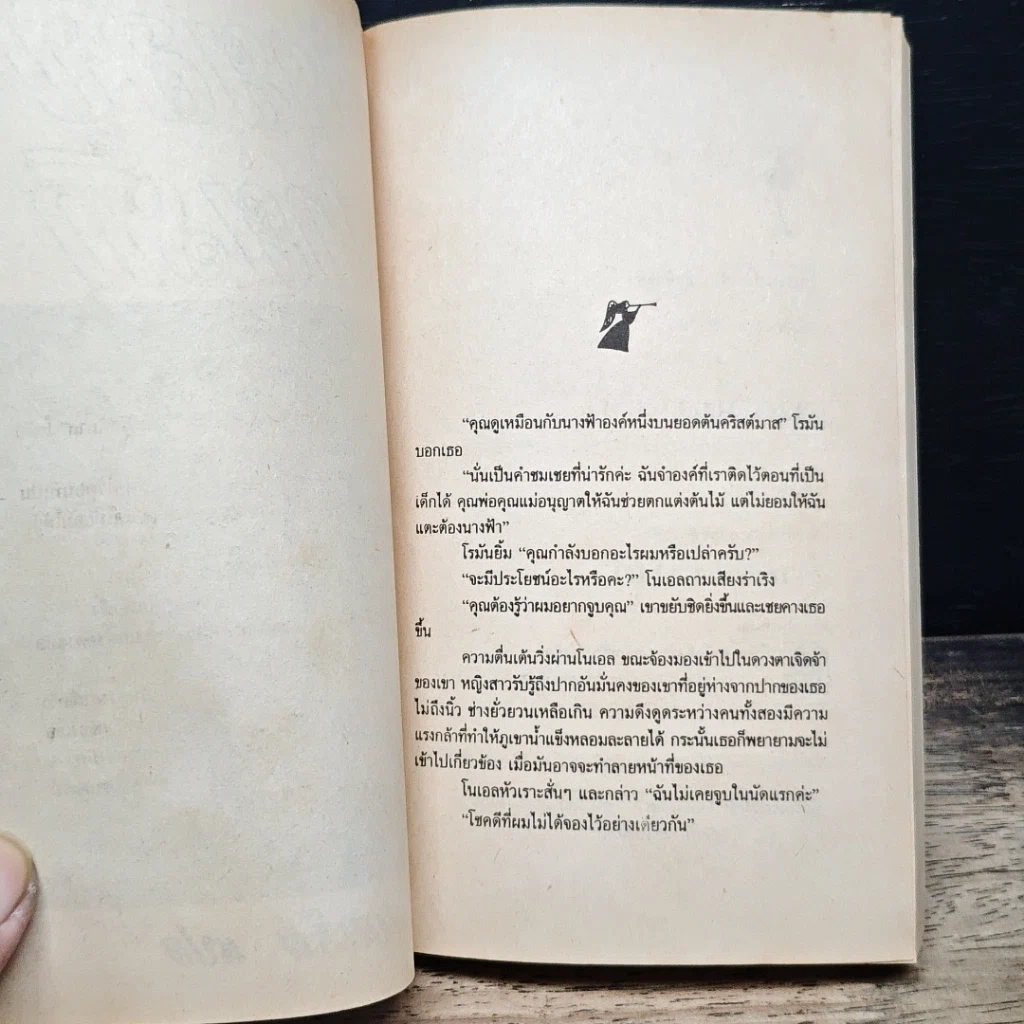 “คุณดูเหมือนกับนางฟ้าองค์หนึ่งบนยอดต้นคริสต์มาส” โรมัน
บอกเธอ
“นั่นเป็นคำชมเชยที่น่ารักค่ะ ฉันจำองค์ที่เราติดไว้ตอนที่เป็น
เด็กได้ คุณพ่อคุณแม่อนุญาตให้ฉันช่วยตกแต่งต้นไม้ แต่ไม่ยอมให้ฉัน
แตะต้องนางฟ้า”
โรมันยิ้ม “คุณกำลังบอกอะไรผมหรือเปล่าครับ?”
“จะมีประโยชน์อะไรหรือคะ?” โนเอลถามเสียงร่าเริง
“คุณต้องรู้ว่าผมอยากจูบคุณ” เขาขยับชิดยิ่งขึ้นและเชยคางเธอ
ขึ้น
ความตื่นเต้นวิ่งผ่านโนเอล ขณะจ้องมองเข้าไปในดวงตาเจิดจ้า
ของเขา หญิงสาวรับรู้ถึงปากอันมั่นคงของเขาที่อยู่ห่างจากปากของเธอ
ไม่ถึงนิ้ว ช่างยั่วยวนเหลือเกิน ความดึงดูดระหว่างคนทั้งสองมีความ
แรงกล้าที่ทำให้ภูเขาน้ำแข็งหลอมละลายได้ กระนั้นเธอก็พยายามจะไม่
เข้าไปเกี่ยวข้อง เมื่อมันอาจจะทำลายหน้าที่ของเธอ
โนเอลหัวเราะสั่นๆ และกล่าว “ฉันไม่เคยจูบในนัดแรกค่ะ”
“โชคดีที่ผมไม่ได้จองไว้อย่างเดียวกัน”